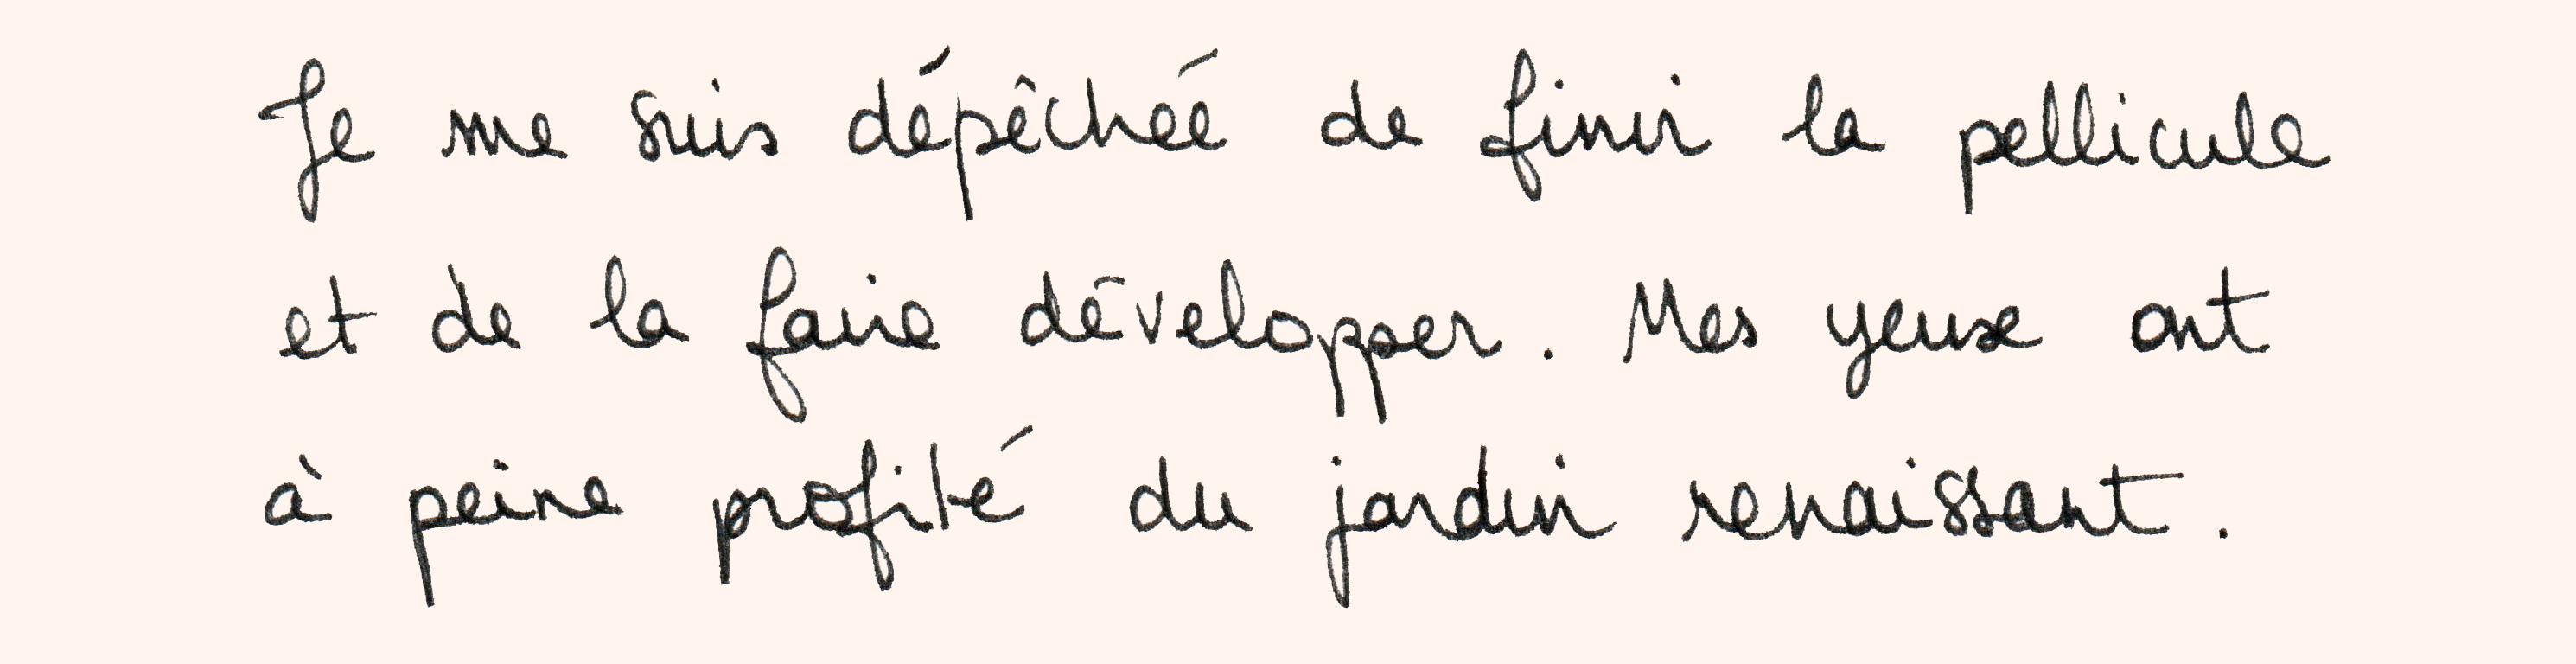 Je me suis dépêchée de finir la pellicule
et de la faire développer. Mes yeux ont
à peine profité du jardin renaissant.